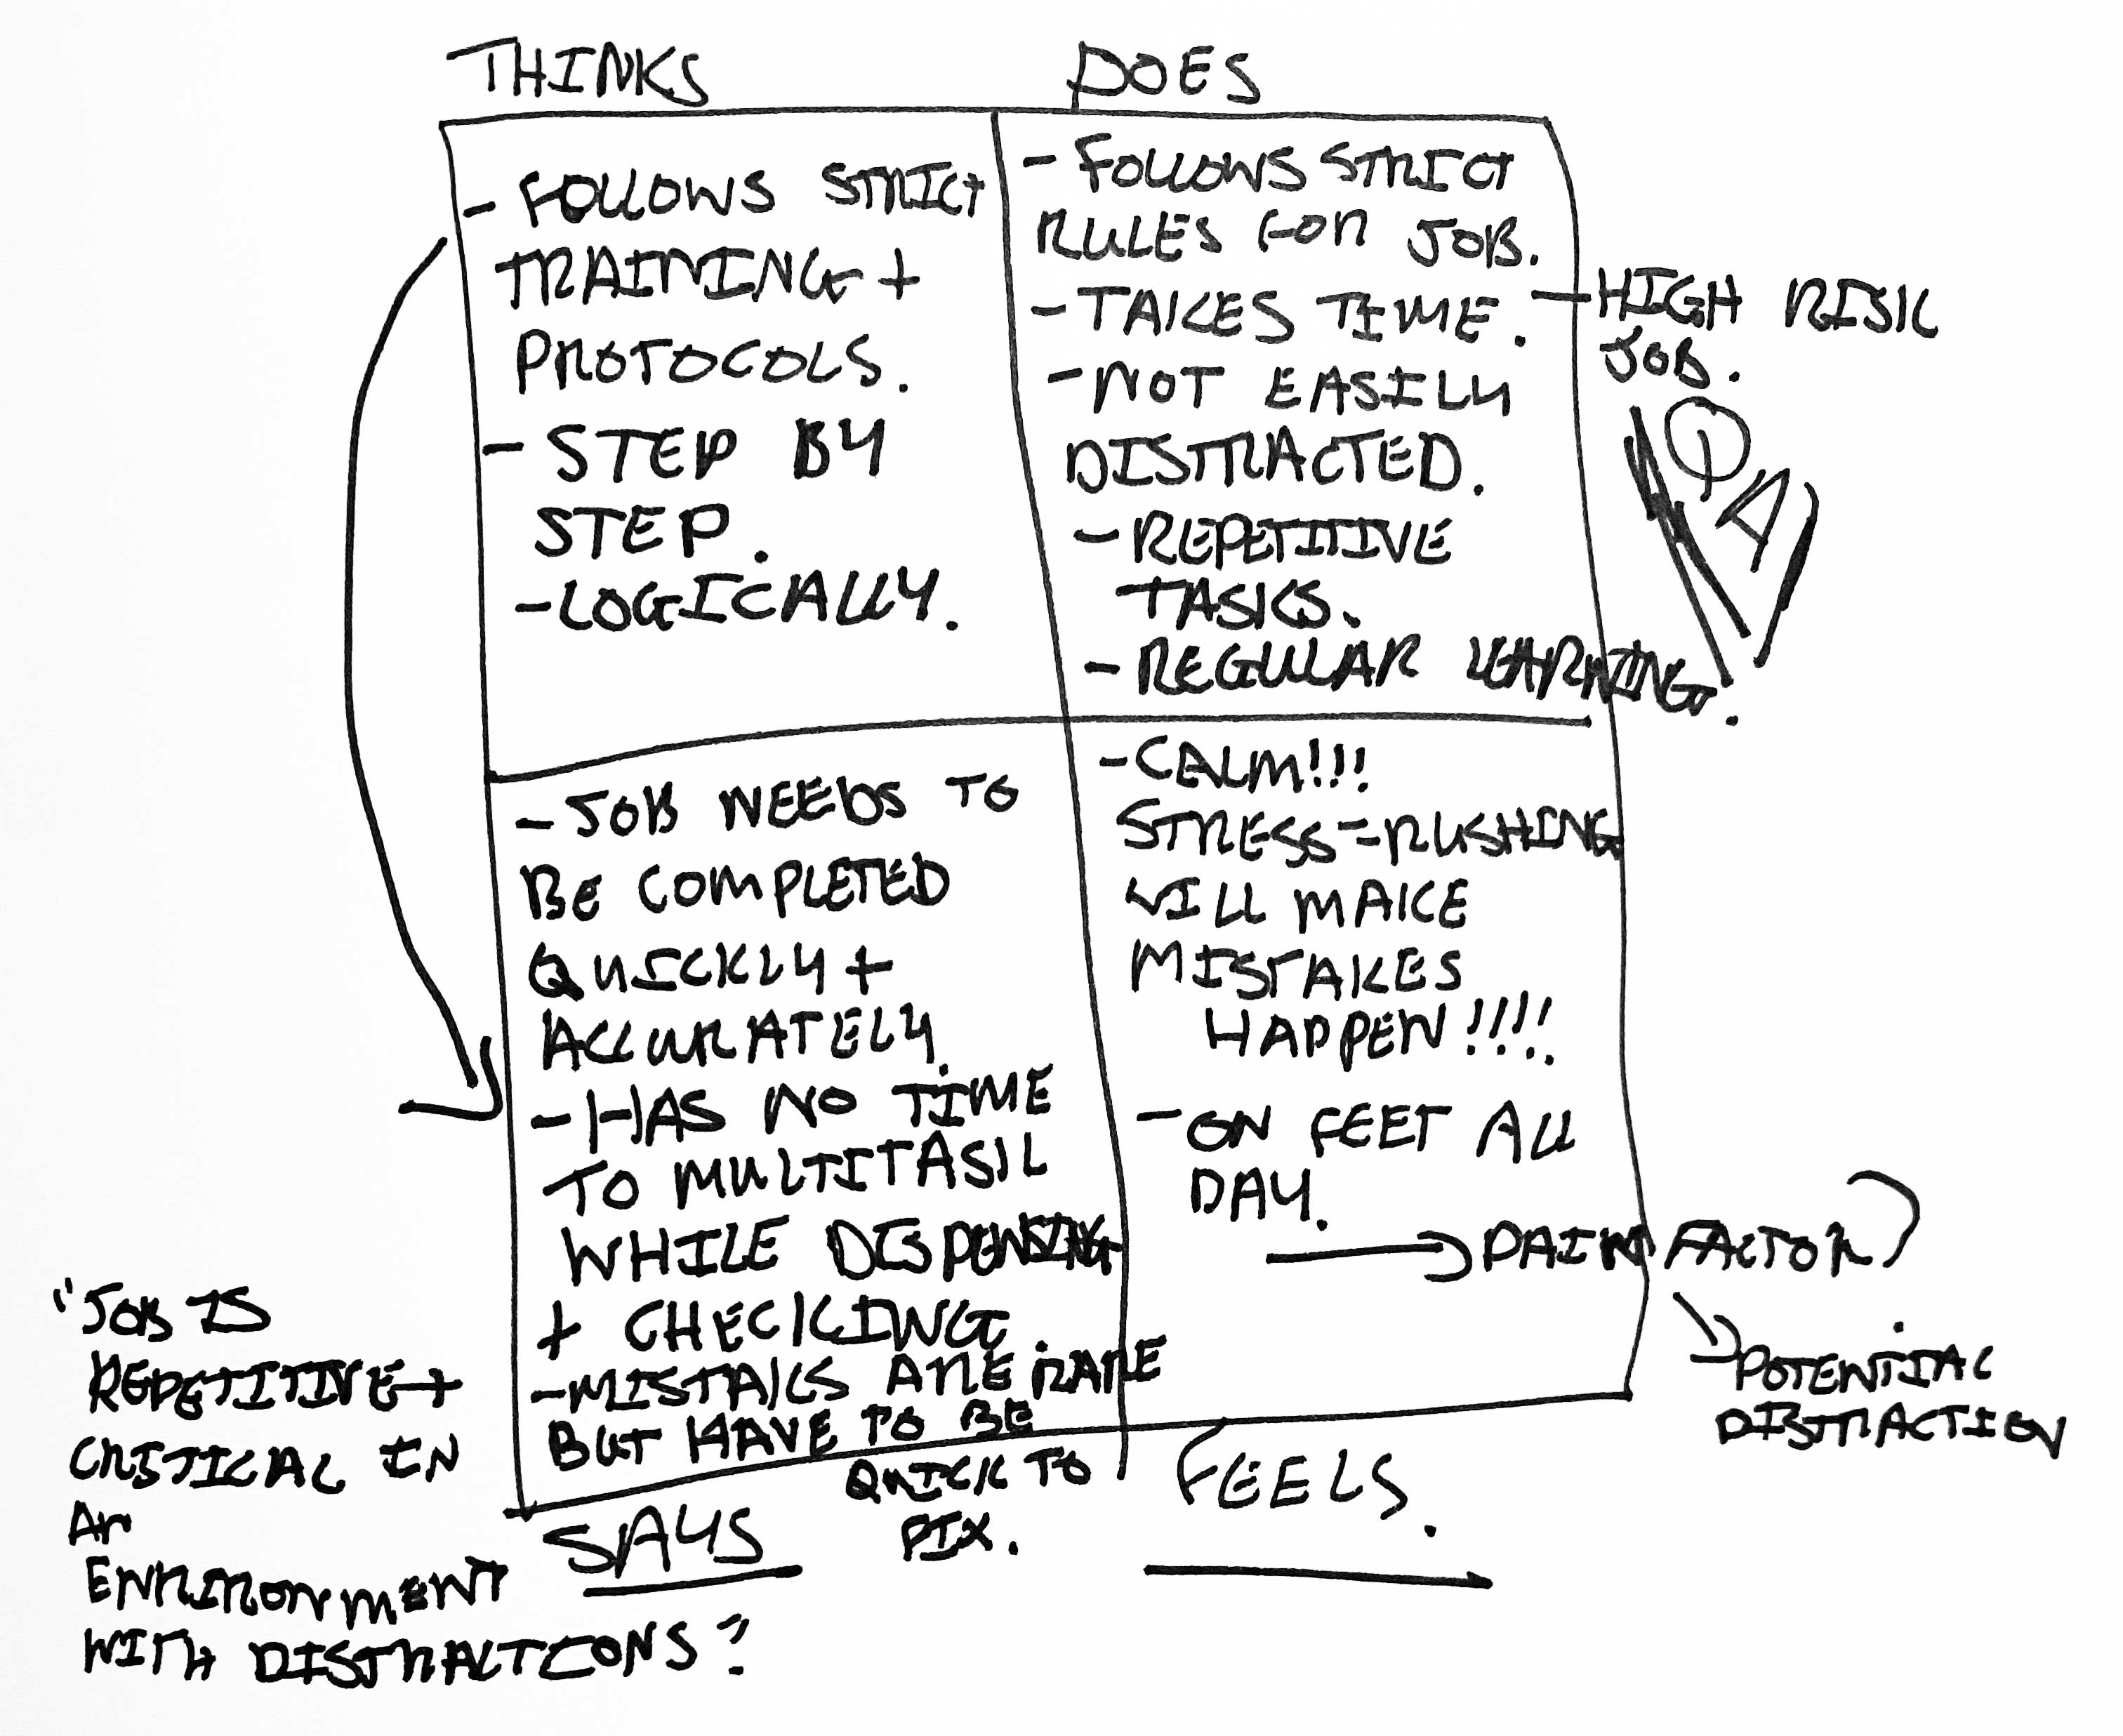 THINKS
- FOLLOWS STRICT
TRAINING +
PROTOCOLS.
- STEP BY
STEP.
- LOGICALLY.
DOES
- FOLLOWS STRICT
RULES FOR JOB.
- TAKES TIME.
- NOT EASILY
DISTRACTED.
- REPETITIVE
TASKS.
- REGULAR LEARNING.
- HIGH RISK
JOB.
- JOB NEEDS TO
BE COMPLETED
QUICKLY +
ACCURATELY.
- HAS NO TIME
TO MULTITASK
WHILE DISPENSING
+ CHECKING.
- MISTAKS ARE RARE
BUT HAVE TO BE
QUICK TO
FIX.
SAYS
- CALM!!!
STRESS = RUSHING
WILL MAKE
MISTAKES
HAPPEN!!!!
- ON FEET ALL
DAY.
PAIN FACTOR?
POTENTIAL
DISTRACTION
FEELS.
"JOB IS
REPETITIVE +
CRITICAL IN
AN
ENVIRONMENT
WITH DISTRACTIONS?